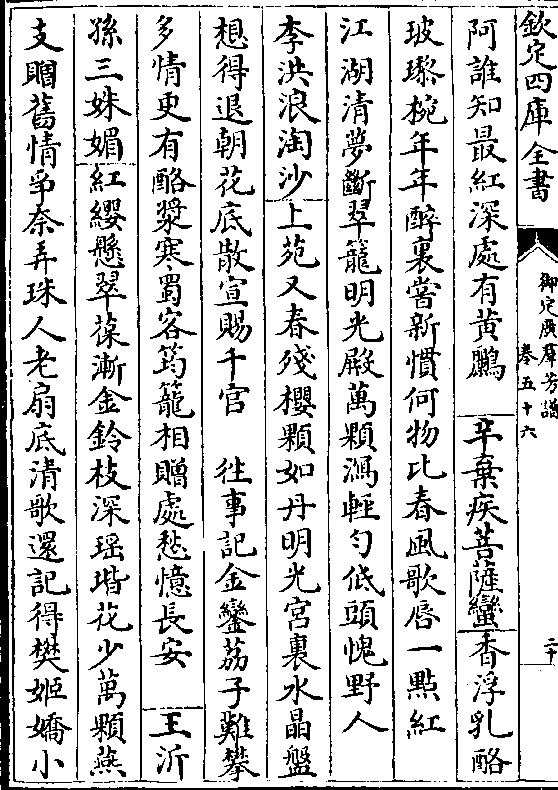 欽定四庫全書
御定廣羣芳譜
卷五十六
二十
阿誰知最紅深處有黃鸝 辛棄疾菩薩蠻香浮乳酪
玻瓈椀年年醉裏嘗新慣何物比春風歌唇一點紅
江湖清夢斷翠籠明光殿萬顆瀉輕勻低頭愧野人
李洪浪淘沙上苑又春殘櫻顆如丹明光宮裏水晶盤
想得退朝花底散宣賜千官 往事記金鑾荔子難攀
多情更有酪漿寒蜀客筠籠相贈處愁憶長安 王沂
孫三姝媚紅纓懸翠葆漸金鈴枝深瑤堦花少萬顆燕
支賙舊情爭奈弄珠人老扇底清歌還記得樊姬嬌小